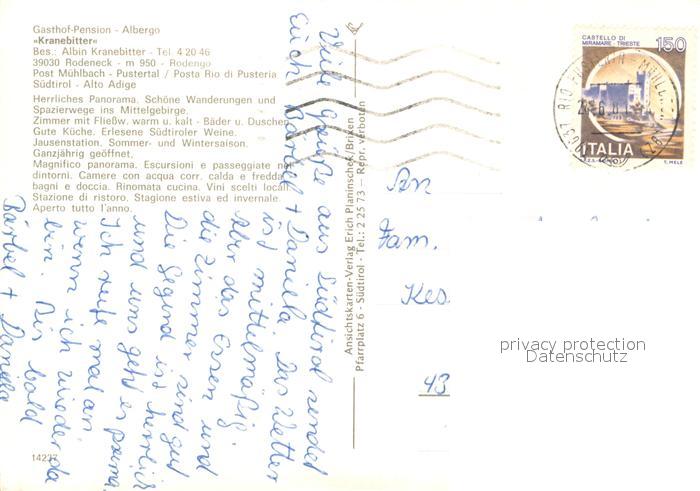 Gasthof-Pension - Albergo
»Kranebitter«
Bes.: Albin Kranebitter - Tel. 4 20 46
39030 Rodeneck - m 950 - Rodengo
Post Mühlbach - Pustertal / Posta Rio di Pusteria
Südtirol - Alto Adige
Herrliches Panorama. Schöne Wanderungen und
Spazierwege ins Mittelgebirge.
Zimmer mit Fließw. warm u. kalt - Bäder u. Duschen
Gute Küche. Erlesene Südtiroler Weine.
Jausenstation. Sommer- und Wintersaison.
Ganzjährig geöffnet.
Magnifico panorama. Escursioni e passeggiate nei
dintorni. Camere con acqua corr. calda e fredda
bagni e doccia. Rinomata cucina. Vini scelti locali.
Stazione di ristoro. Stagione estiva ed invernale.
Aperto tutto l'anno.
14237
Viele Grüße aus Südtirol sendet
Euch Bärbel + Daniela. Das Wetter
ist mittelmäßig.
Aber das Essen und
die Zimmer sind gut
Die Gegend ist herrlich
und uns geht es prima.
Ich rufe mal an
wenn ich wieder da
bin. Bis bald
Bärbel + Daniela
Ansichtskarten-Verlag Erich Planinschek/Brixen
Pfarrplatz 6 - Südtirol - Tel.: 2 25 73 - Repr. verboten
CASTELLO DI
MIRAMARE - TRIESTE
150
ITALIA
T. MELE
An
Fam.
Kes
43
privacy protection
Datenschutz